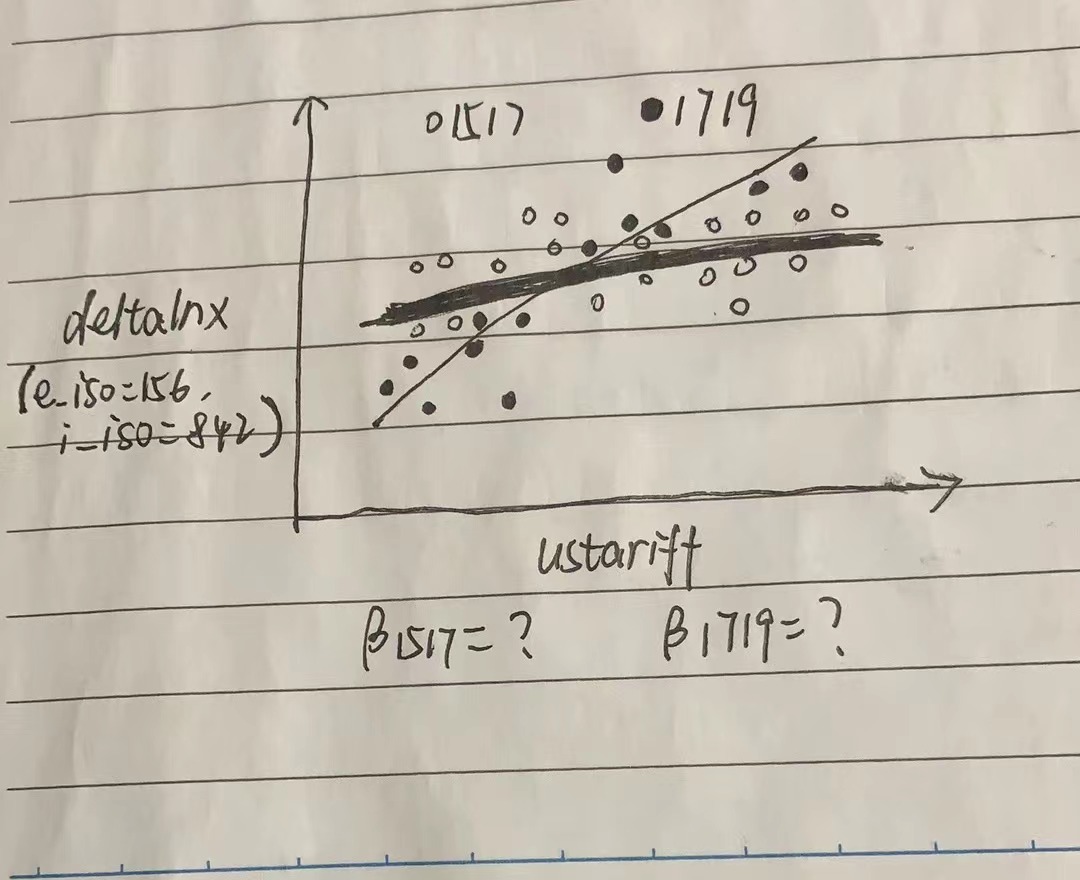 o1517 ●1719
deltalnx
(e_iso=156,
i_iso=842)
ustariff
β1517=? β1719=?